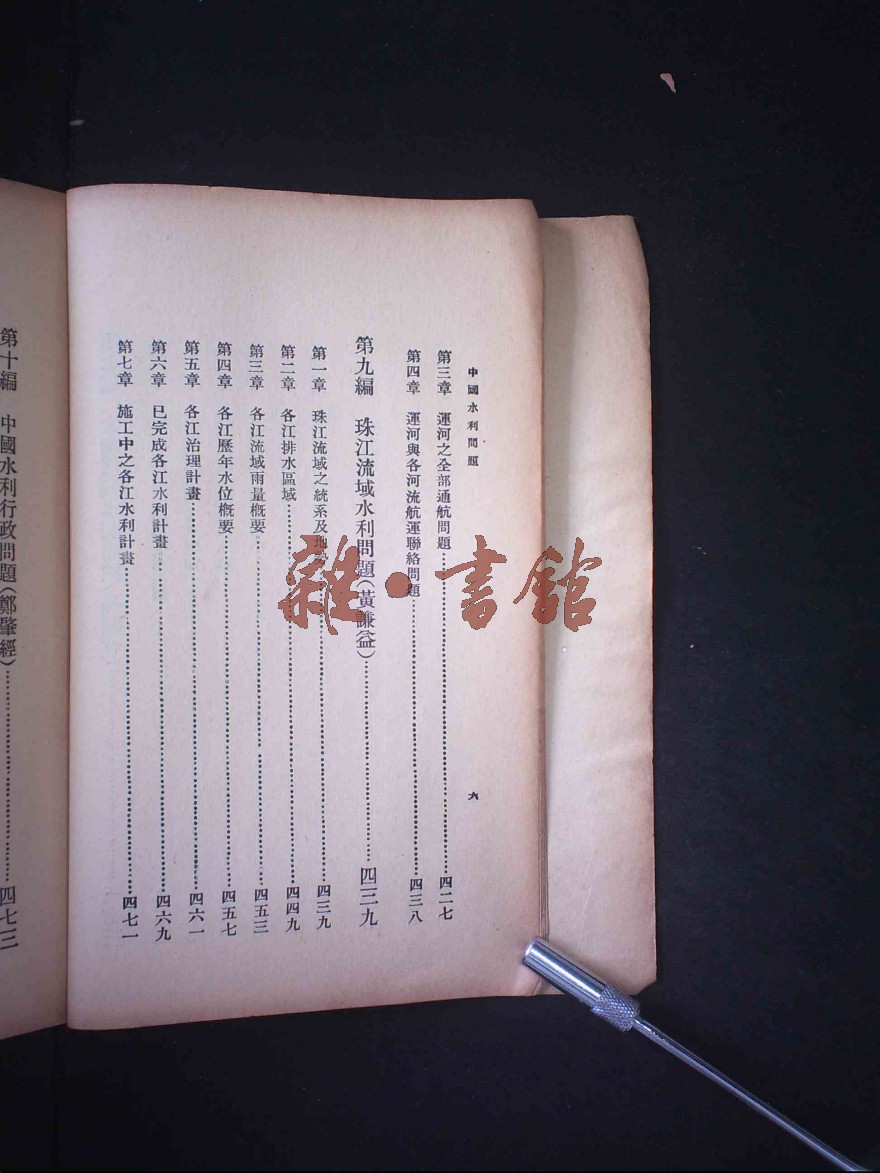 中國水利問題
六
第三章 運河之全部通航問題……四二七
第四章 運河與各河流航運聯絡問題……四三八
第九編 珠江流域水利問題(黃謙益)……四三九
第一章 珠江流域之統系及地……四三九
第二章 各江排水區域……四四九
第三章 各江流域雨量概要……四五三
第四章 各江歷年水位概要……四五七
第五章 各江治理計畫……四六一
第六章 已完成各江水利計畫……四六九
第七章 施工中之各江水利計畫……四七一
第十編 中國水利行政問題(鄭肇經)……四七三
雜·書館